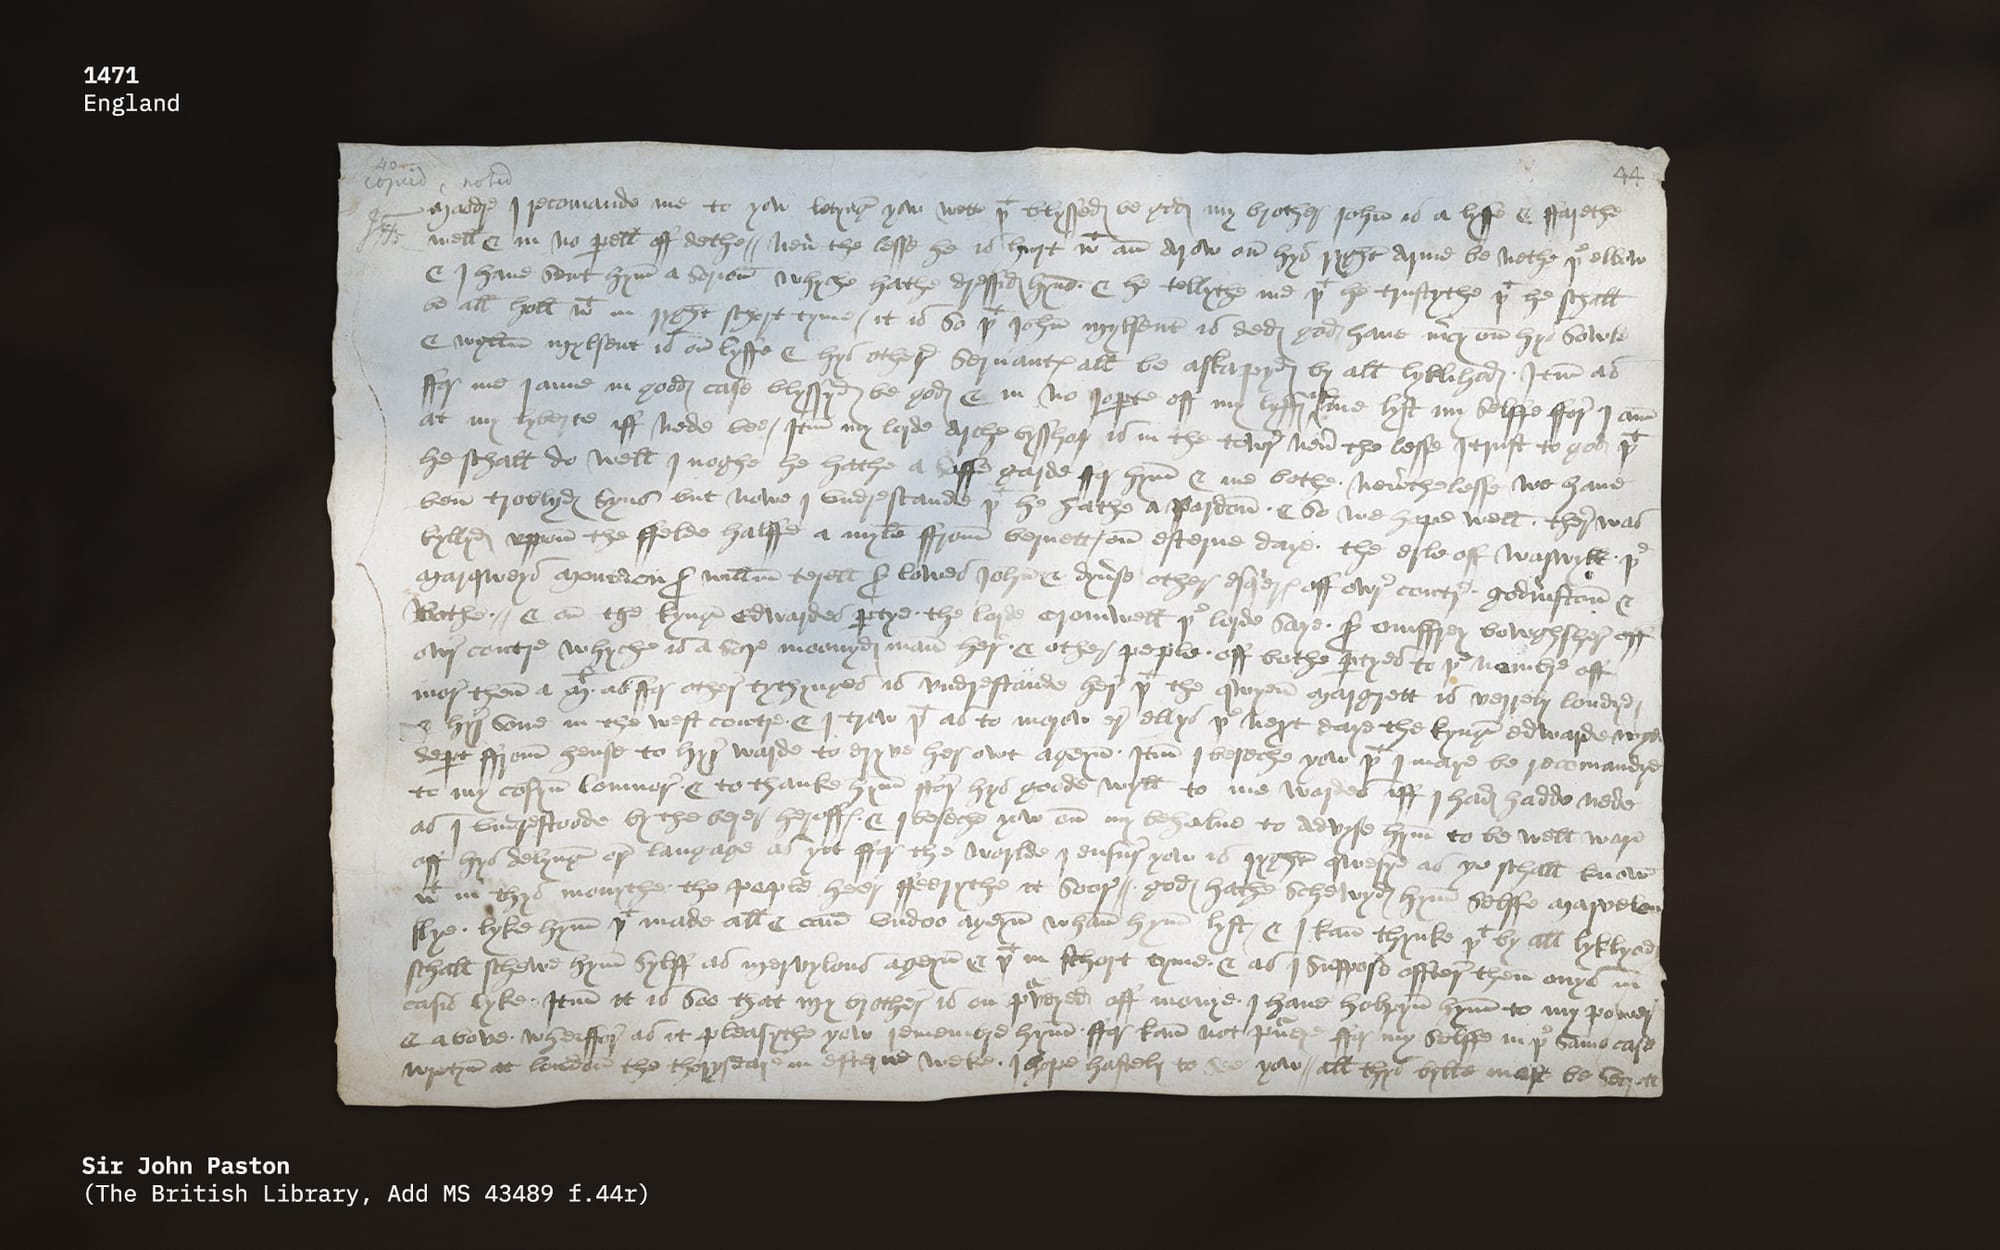 1471
England
44
copied & noted
Modre I recomande me to yow letyng yow wett þᵗ blyssed be god my brother John is a lyffe & ffarethe
well & in no perell off dethe // neu̾ the lesse he is hurt wᵗ an arow on hys ryght arme be nethe þᵉ elbow
& I have sent hym a serion whyche hathe dressid hym & he tellythe me þᵗ he trustythe þᵗ he schall
be all holl wᵗ in ryght schort tyme / it is so þᵗ John mylsent is ded god have m̾cy on hys sowle
& wyllm mylsent is on lyffe & hys other servantꝭ all be askapyd by all lyklihod Itm as
ffor me I ame in good case blyssyd be god & in no Joꝑte off my lyff iff me lyst my selffe ffor I am
at my lyberte iff nede bee / Itm my lorde archebysshop is in the towr neu̾ the lesse I trust to god þᵗ
he schall do well I noghe he hathe a saffe garde ffor hym & me bothe neu̾thelesse we have
ben troblyd syns but nowe I undrestande þᵗ he hathe a pardon & so we hope well ther was
kyllyd uppon the ffelde halffe a myle ffrom bernett on esterne daye the erle off warwykk þᵉ
marqweys montacu Sʳ willm terell Sʳ lowes John & dyu̾se other esqꝰerꝭ off owr contre godm̾ston &
bothe // & on the kyng Edwardes ꝑtye the lorde cromwell þᵉ lorde saye Sʳ omffrey bowghsher off
owr contre whyche is a sore moonyd man her & other peple off bothe ꝑtyes to þᵉ nombre off
mor then a mˡ as ffor other tythynges is undrestande her þᵗ the qwyen margrett is verrely londyd
& hyr sone in the west contre & I trow þᵗ as to morow er ellys þᵉ next daye the kyng edwarde wyll
deꝑt ffrom hense to hyr warde to dryve her owt ageyn Itm I beseche yow þᵗ I maye be recomandyd
to my cosyn lomnor & to thanke hym ffor hys goode wyll to me wardes iff I had hadde nede
as I undrestoode by the berer heroff & I beseche yow on my behalve to advyse hym to be well war
off hys delyng or langage as yit ffor the worlde I ensur yow is ryght qwesye as ye schall know
wᵗ in thys monythe the peple heer ffeerythe it soor // god hathe schewyd hym selffe marvelous
lye lyke hym þᵗ made all & can undoo ageyn whan hym lyst & I kan thynke þᵗ by all lyklyod
schall schewe hym sylff as mervylous ageyn & þᵗ in schort tyme & as I suppose offter then onys in
casis lyke Itm it is soo that my brother is on pᵃveyed off monye I have holpyn hym to my power
& above wherffor as it pleasythe yow remembre hym ffor kan not pᵃveye ffor my selffe in þᵉ same case
wrytyn at london the thorysdaye in esterne weke I hope hastely to see yow // all thys bylle must be secrett
Sir John Paston
(The British Library, Add MS 43489 f.44r)